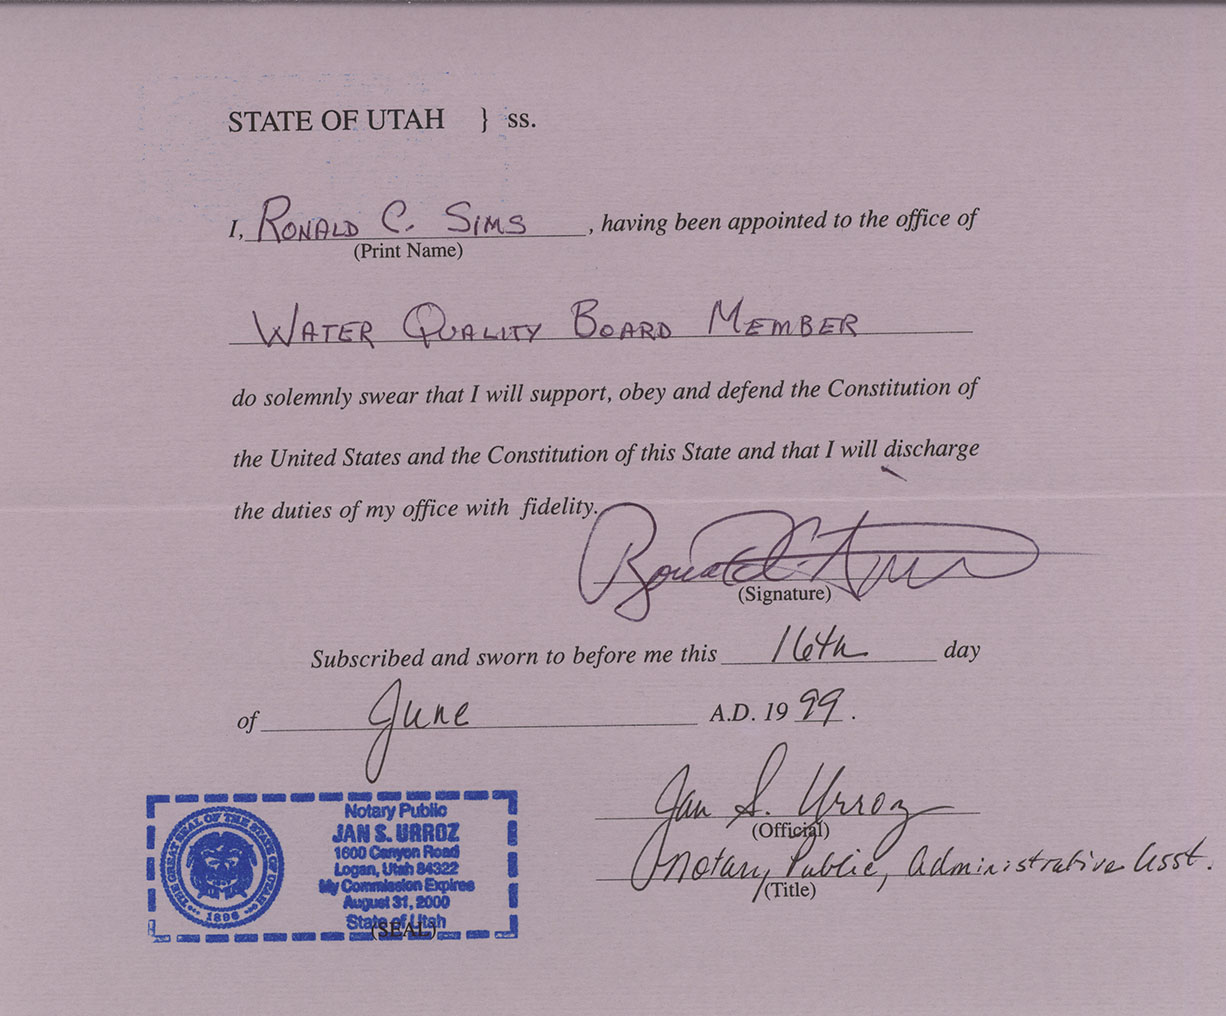 STATE OF UTAH } ss.
I, RONALD C. SIMS , having been appointed to the office of
(Print Name)
WATER QUALITY BOARD MEMBER
do solemnly swear that I will support, obey and defend the Constitution of
the United States and the Constitution of this State and that I will discharge
the duties of my office with fidelity.
Ronald C. Sims
(Signature)
Subscribed and sworn to before me this 16th day
of June A.D. 19 99 .
Jan S. Urroz
(Official)
Notary Public, Administrative Asst.
(Title)
THE GREAT SEAL OF THE STATE OF UTAH
1896
Notary Public
JAN S. URROZ
1600 Canyon Road
Logan, Utah 84322
My Commission Expires
August 31, 2000
State of Utah
(SEAL)